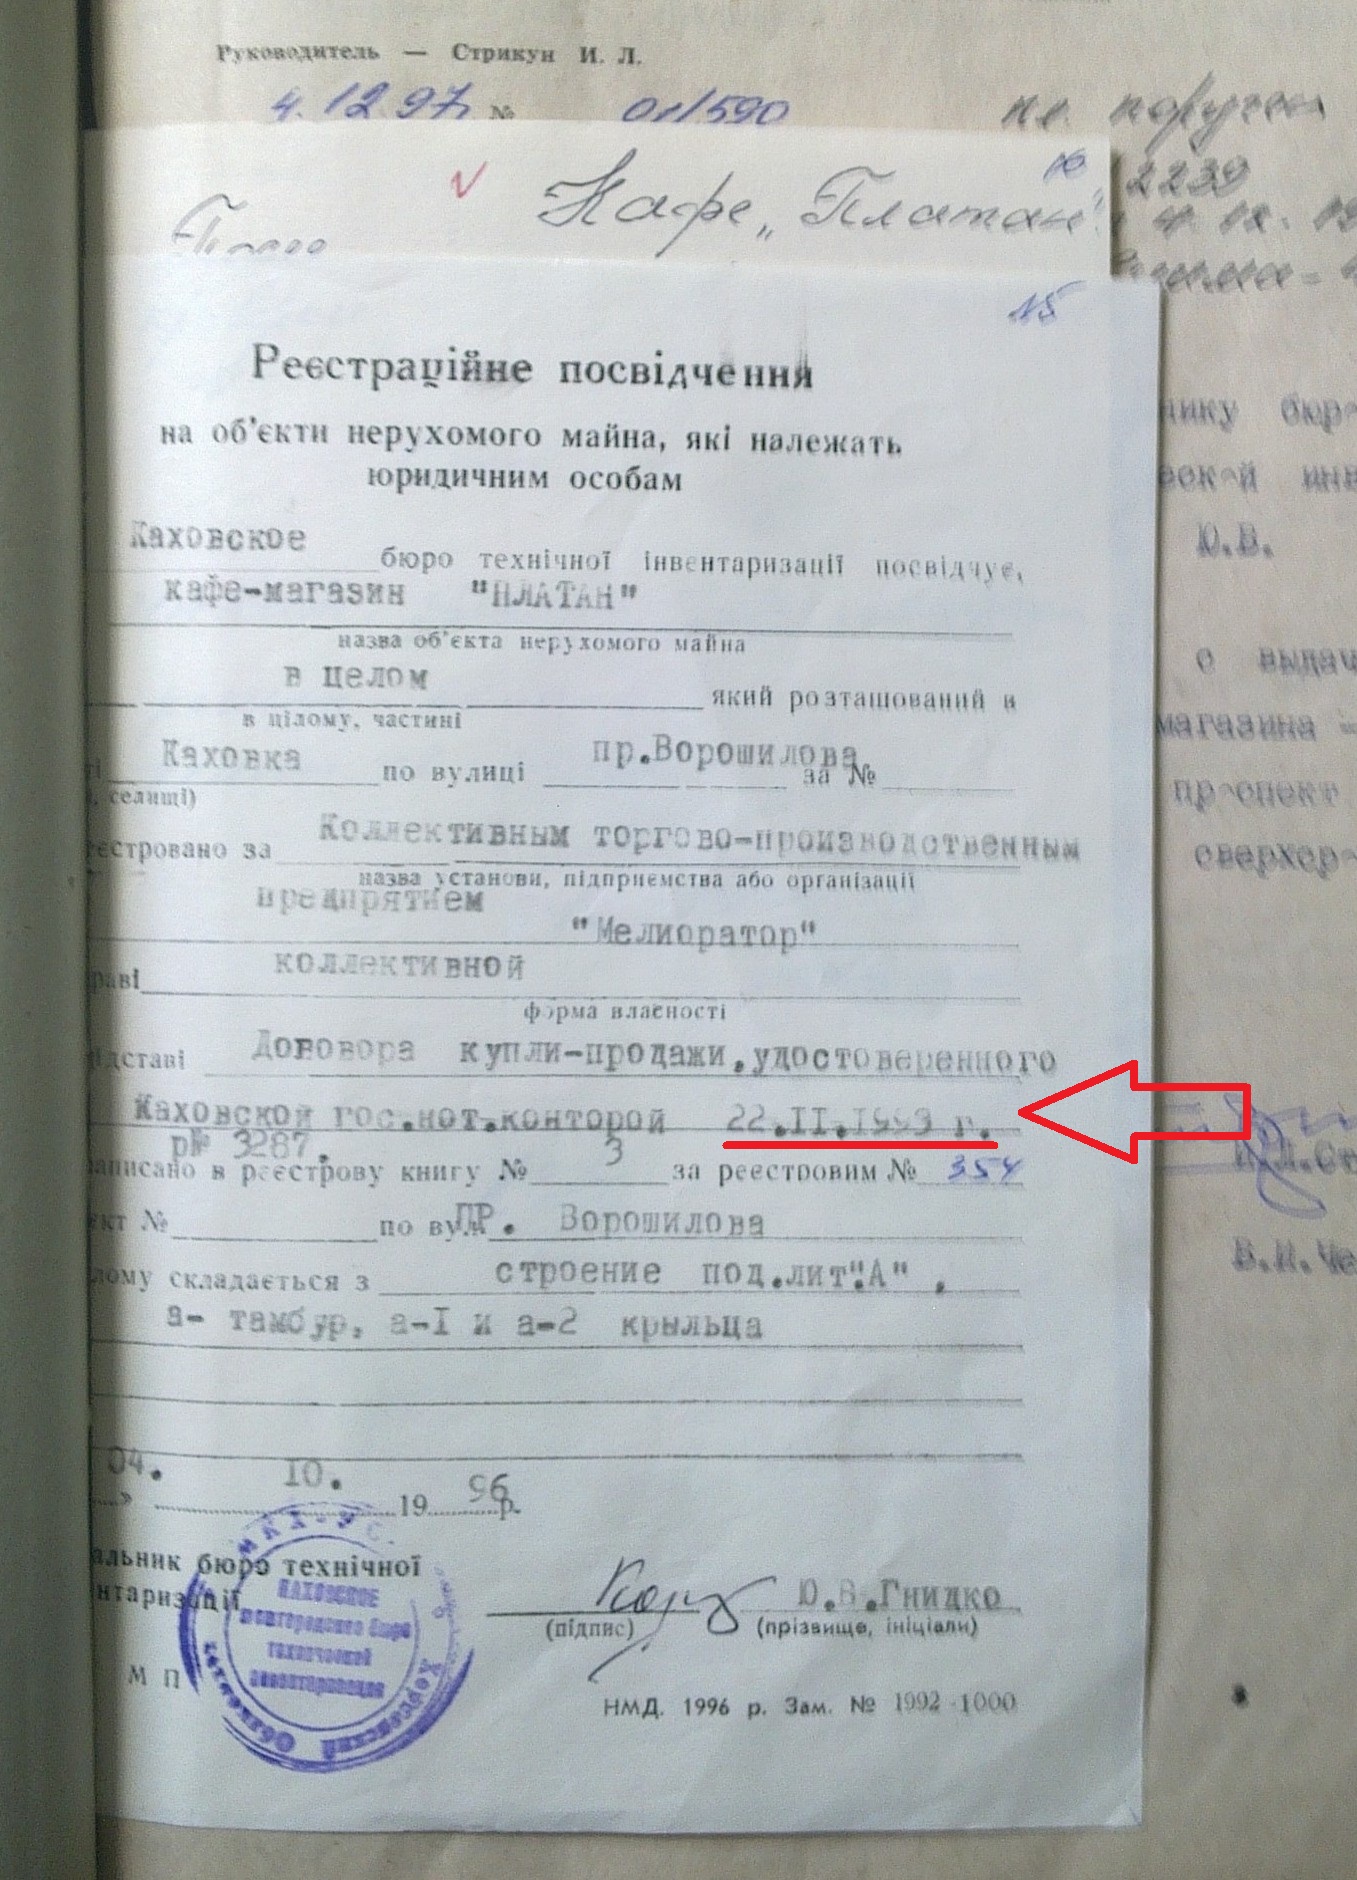 Руководитель — Стрикун И. Л.
4.12.97 № 01/590
2239
16
Кафе „Платан"
15
Реєстраційне посвідчення
на об'єкти нерухомого майна, які належать
юридичним особам
Каховское бюро технічної інвентаризації посвідчує,
кафе-магазин "ПЛАТАН"
назва об'єкта нерухомого майна
в целом який розташований в
в цілому, частині
Каховка по вулиці пр.Ворошилова за №
селищі)
Коллективным торгово-производственным
назва установи, підприємства або організації
предпрятием
"Мелиоратор"
коллективной
форма власності
Договора купли-продажи,удостоверенного
Каховской гос.нот.конторой 22.II.1993 г.
р№ 3287. 3
в реєстрову книгу № за реєстровим № 354
№ по вул ПР. Ворошилова
складається з строение под.лит"А" ,
а- тамбур, а-I и а-2 крыльца
04. 10. 1996 р.
бюро технічної
Ю.В.Гнидко
(підпис) (прізвище, ініціали)
КАХОВСКОЕ
межгородское бюро
технической
инвентаризации
М П
НМД. 1996 р. Зам. № 1992-1000
Ю.В.
о
проспект